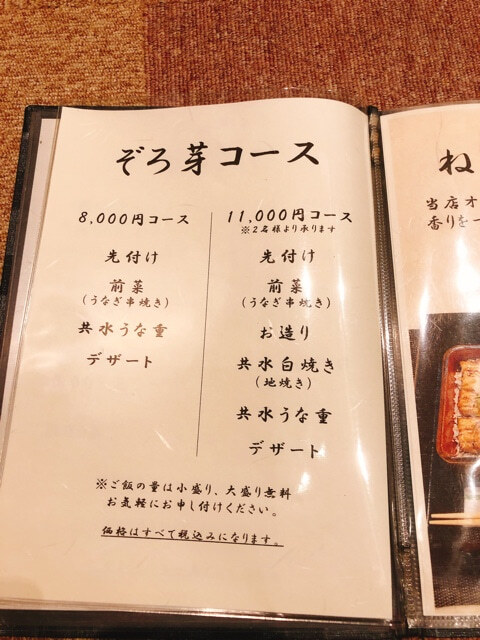 ぞろ芽コース
8,000円コース
先付け
前菜
(うなぎ串焼き)
共水うな重
デザート
11,000円コース
※2名様より承ります
先付け
前菜
(うなぎ串焼き)
お造り
共水白焼き
(地焼き)
共水うな重
デザート
※ご飯の量は小盛り、大盛り無料
お気軽にお申し付けください。
価格はすべて税込みになります。
ね
当店オ
香りを一